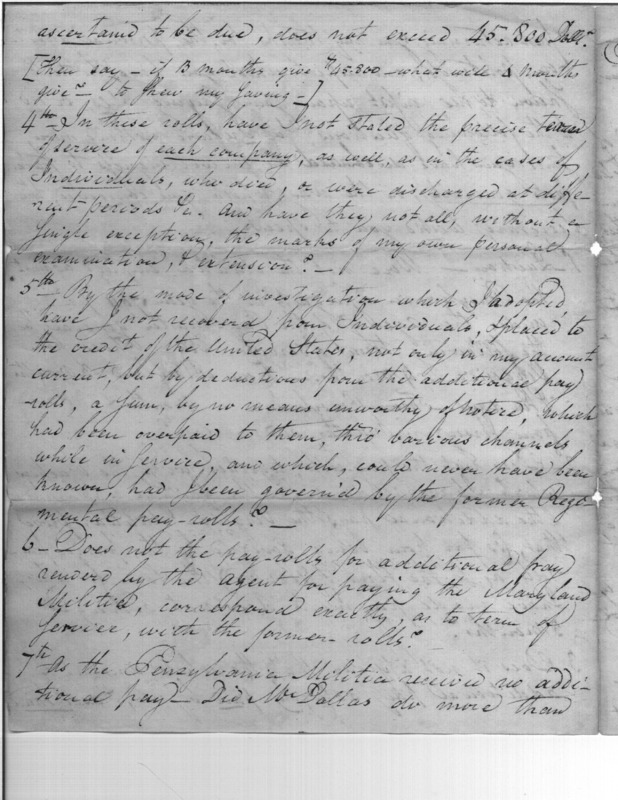 ascertain'd to be due, does not exceed 45.800 Dollrs.
[then say – if 13 months give $45.800 – what will Δ months
give? – to shew my saving –]
4th – In these rolls, have I not stated the precise term
of service of each company, as well, as in the cases of
Individuals, who died, or were discharged at diffe-
rent periods &c. And have they not all, without a
single exception, the marks of my own personal
examination, & extension? –
5th – By the mode of investigation which I adopted,
have I not recovered from Individuals, & placed to
the credit of the United States, not only in my account
current, but by deductions from the additional pay
rolls, a sum, by no means unworthy of notice, which
had been overpaid to them, thro' various channels
while in service, and which, could never have been
known, had I been govern'd by the former Regi-
mental pay-rolls? –
6 – Does not the pay-rolls for additional pay
renderd by the agent for paying the Maryland
Militia, correspond exactly, as to term of
service, with the former-rolls?
7th As the Pensylvania Militia received no addi-
tional pay – Did Mr Dallas do more than